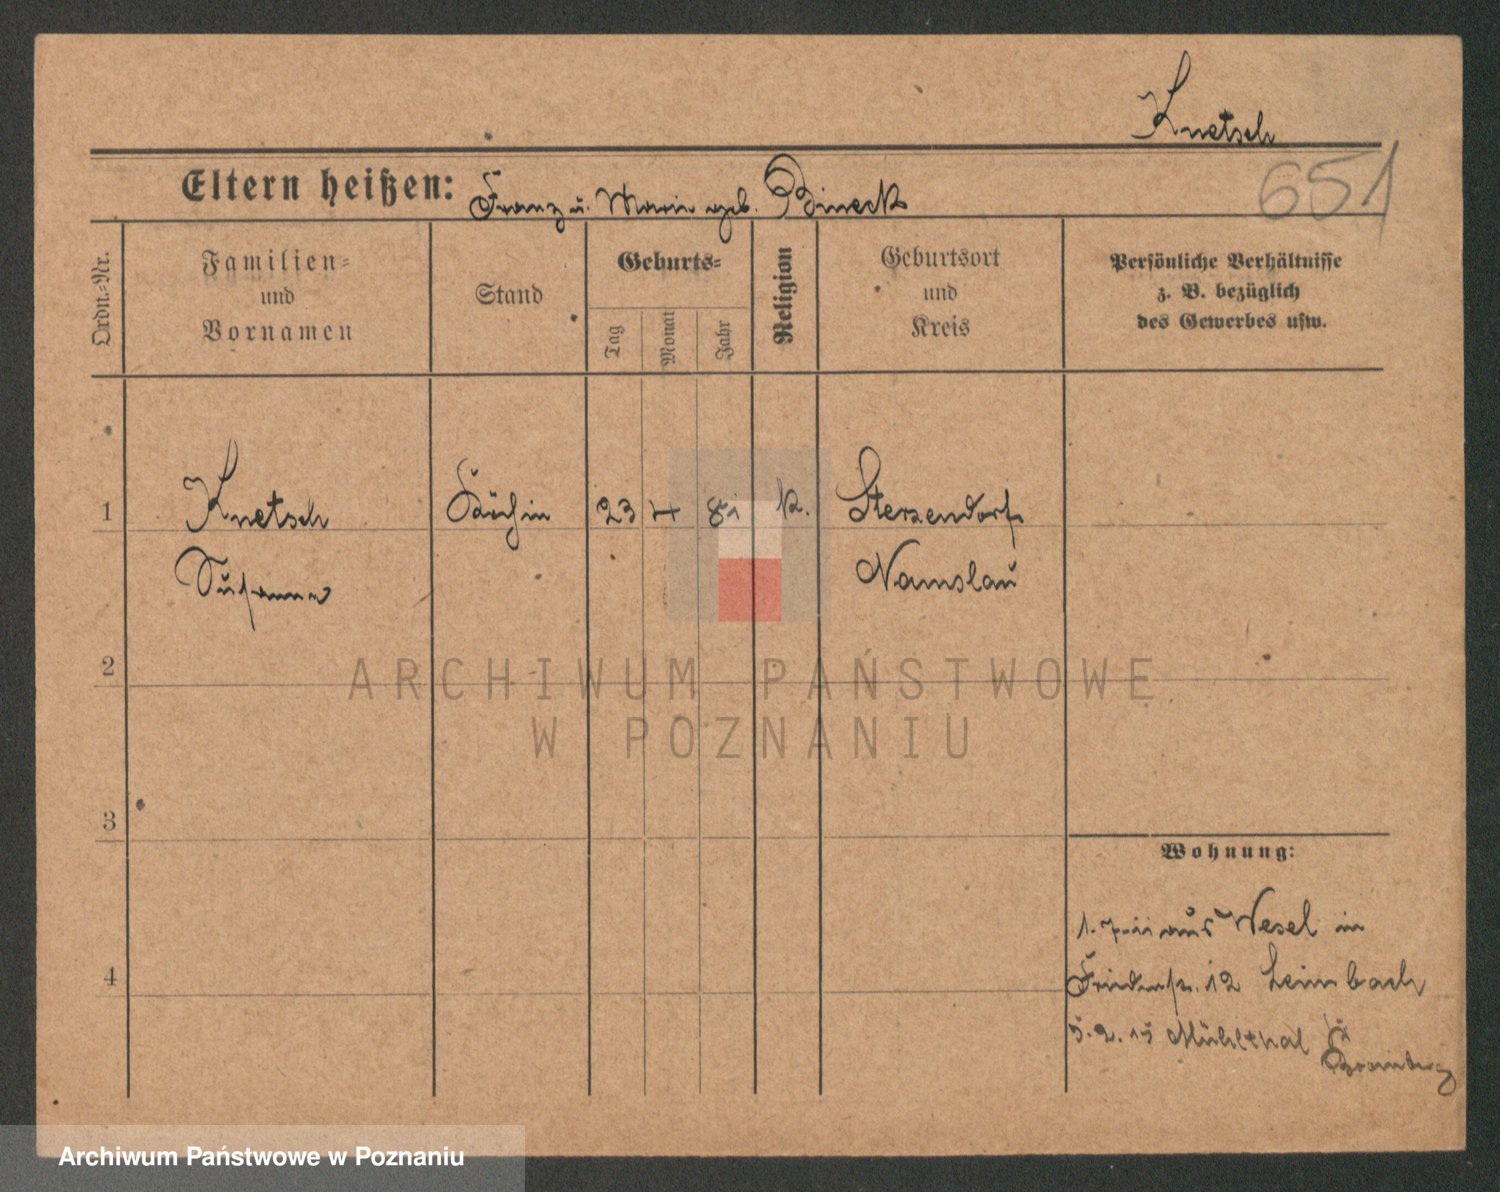 Knetsch
651
Eltern heißen: Franz u. Marie geb. Bineck
Ordn.=Nr.
Familien=
und
Vornamen
Stand
Geburts=
Tag
Monat
Jahr
Religion
Geburtsort
und
Kreis
Persönliche Verhältnisse
z. B. bezüglich
des Gewerbes usw.
1
Knetsch Köchin 23 4 81 k. Sterzendorf
Susanna Namslau
2
ARCHIWUM PAŃSTWOWE
W POZNANIU
3
4
Wohnung:
1. aus Wesel in
Friedenstr. 12 Leimbach
5.2.15 Mühlthal Kr
Bromberg
Archiwum Państwowe w Poznaniu